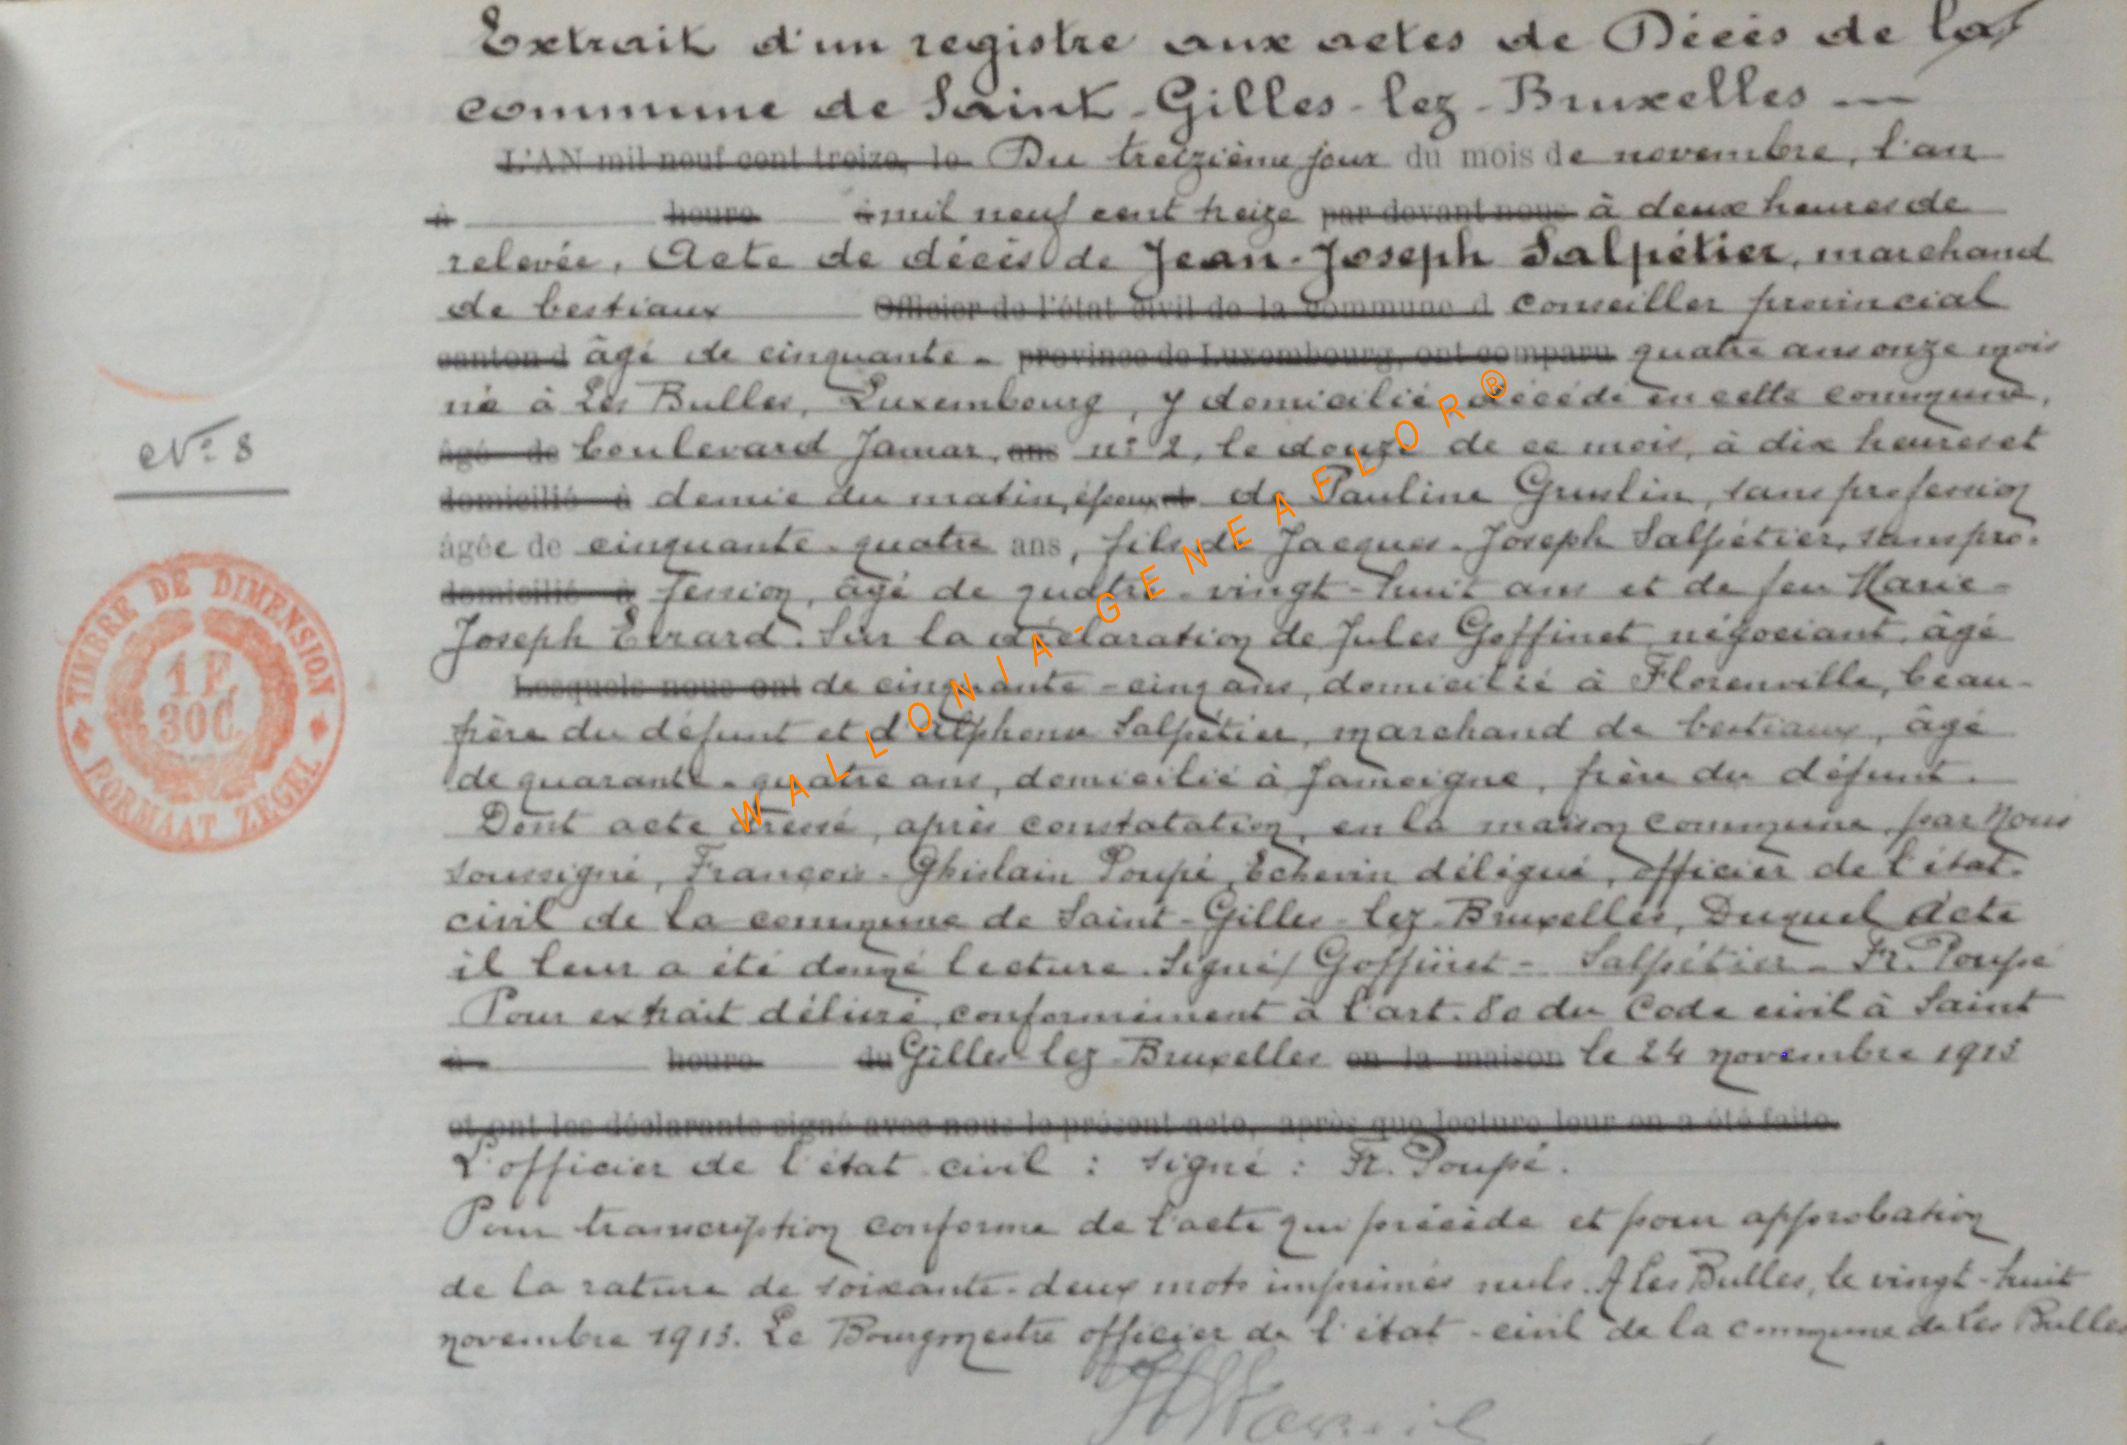 Extrait d'un registre aux actes de Décès de la
commune de Saint-Gilles-lez-Bruxelles —
L'AN mil neuf cent treize, le Du treizième jour du mois de novembre, l'an
à heure à mil neuf cent treize par devant nous à deux heures de
relevée. Acte de décès de Jean-Joseph Salpétier, marchand
de bestiaux Officier de l'état civil de la commune d conseiller provincial
canton d âgé de cinquante- province de Luxembourg, ont comparu quatre ans onze mois
né à Les Bulles, Luxembourg, y domicilié décédé en cette commune,
N° 8
âgé de boulevard Jamar, ans n° 2, le douze de ce mois, à dix heures et
domicilié à demie du matin, époux de Pauline, sans profession
âgée de cinquante-quatre ans, fils de Jacques-Joseph Salpétier, sans pro-
domicilié à fession, âgé de quatre-vingt-huit ans et de feu Marie-
Joseph Evrard. Sur la déclaration de Jules Goffinet négociant, âgé
Lesquels nous ont de cinquante-cinq ans, domicilié à Florenville, beau-
frère du défunt et d'Alphonse Salpétier, marchand de bestiaux, âgé
de quarante-quatre ans, domicilié à Jamoigne, frère du défunt.
Dont acte dressé, après constatation, en la maison communale, par Nous
soussigné, François-Ghislain Poupé, Echevin délégué, officier de l'état-
civil de la commune de Saint-Gilles-lez-Bruxelles, Duquel Acte
il leur a été donné lecture. Signé/ Goffinet - Salpétier - Fr. Poupé
Pour extrait délivré conformément à l'art. 80 du Code civil à Saint
à heure du Gilles-lez-Bruxelles en la maison le 24 novembre 1913
et ont les déclarants signé avec nous le présent acte, après que lecture leur en a été faite.
L'officier de l'état-civil : signé : Fr. Poupé.
Pour transcription conforme de l'acte qui précède et pour approbation
de la rature de soixante-deux mots imprimés nuls. A Les Bulles, le vingt-huit
novembre 1913. Le Bourgmestre officier de l'état-civil de la commune de Les Bulles
TIMBRE DE DIMENSION
1 F.
30 C.
FORMAAT ZEGEL
WALLONIA-GENEAFLOR®